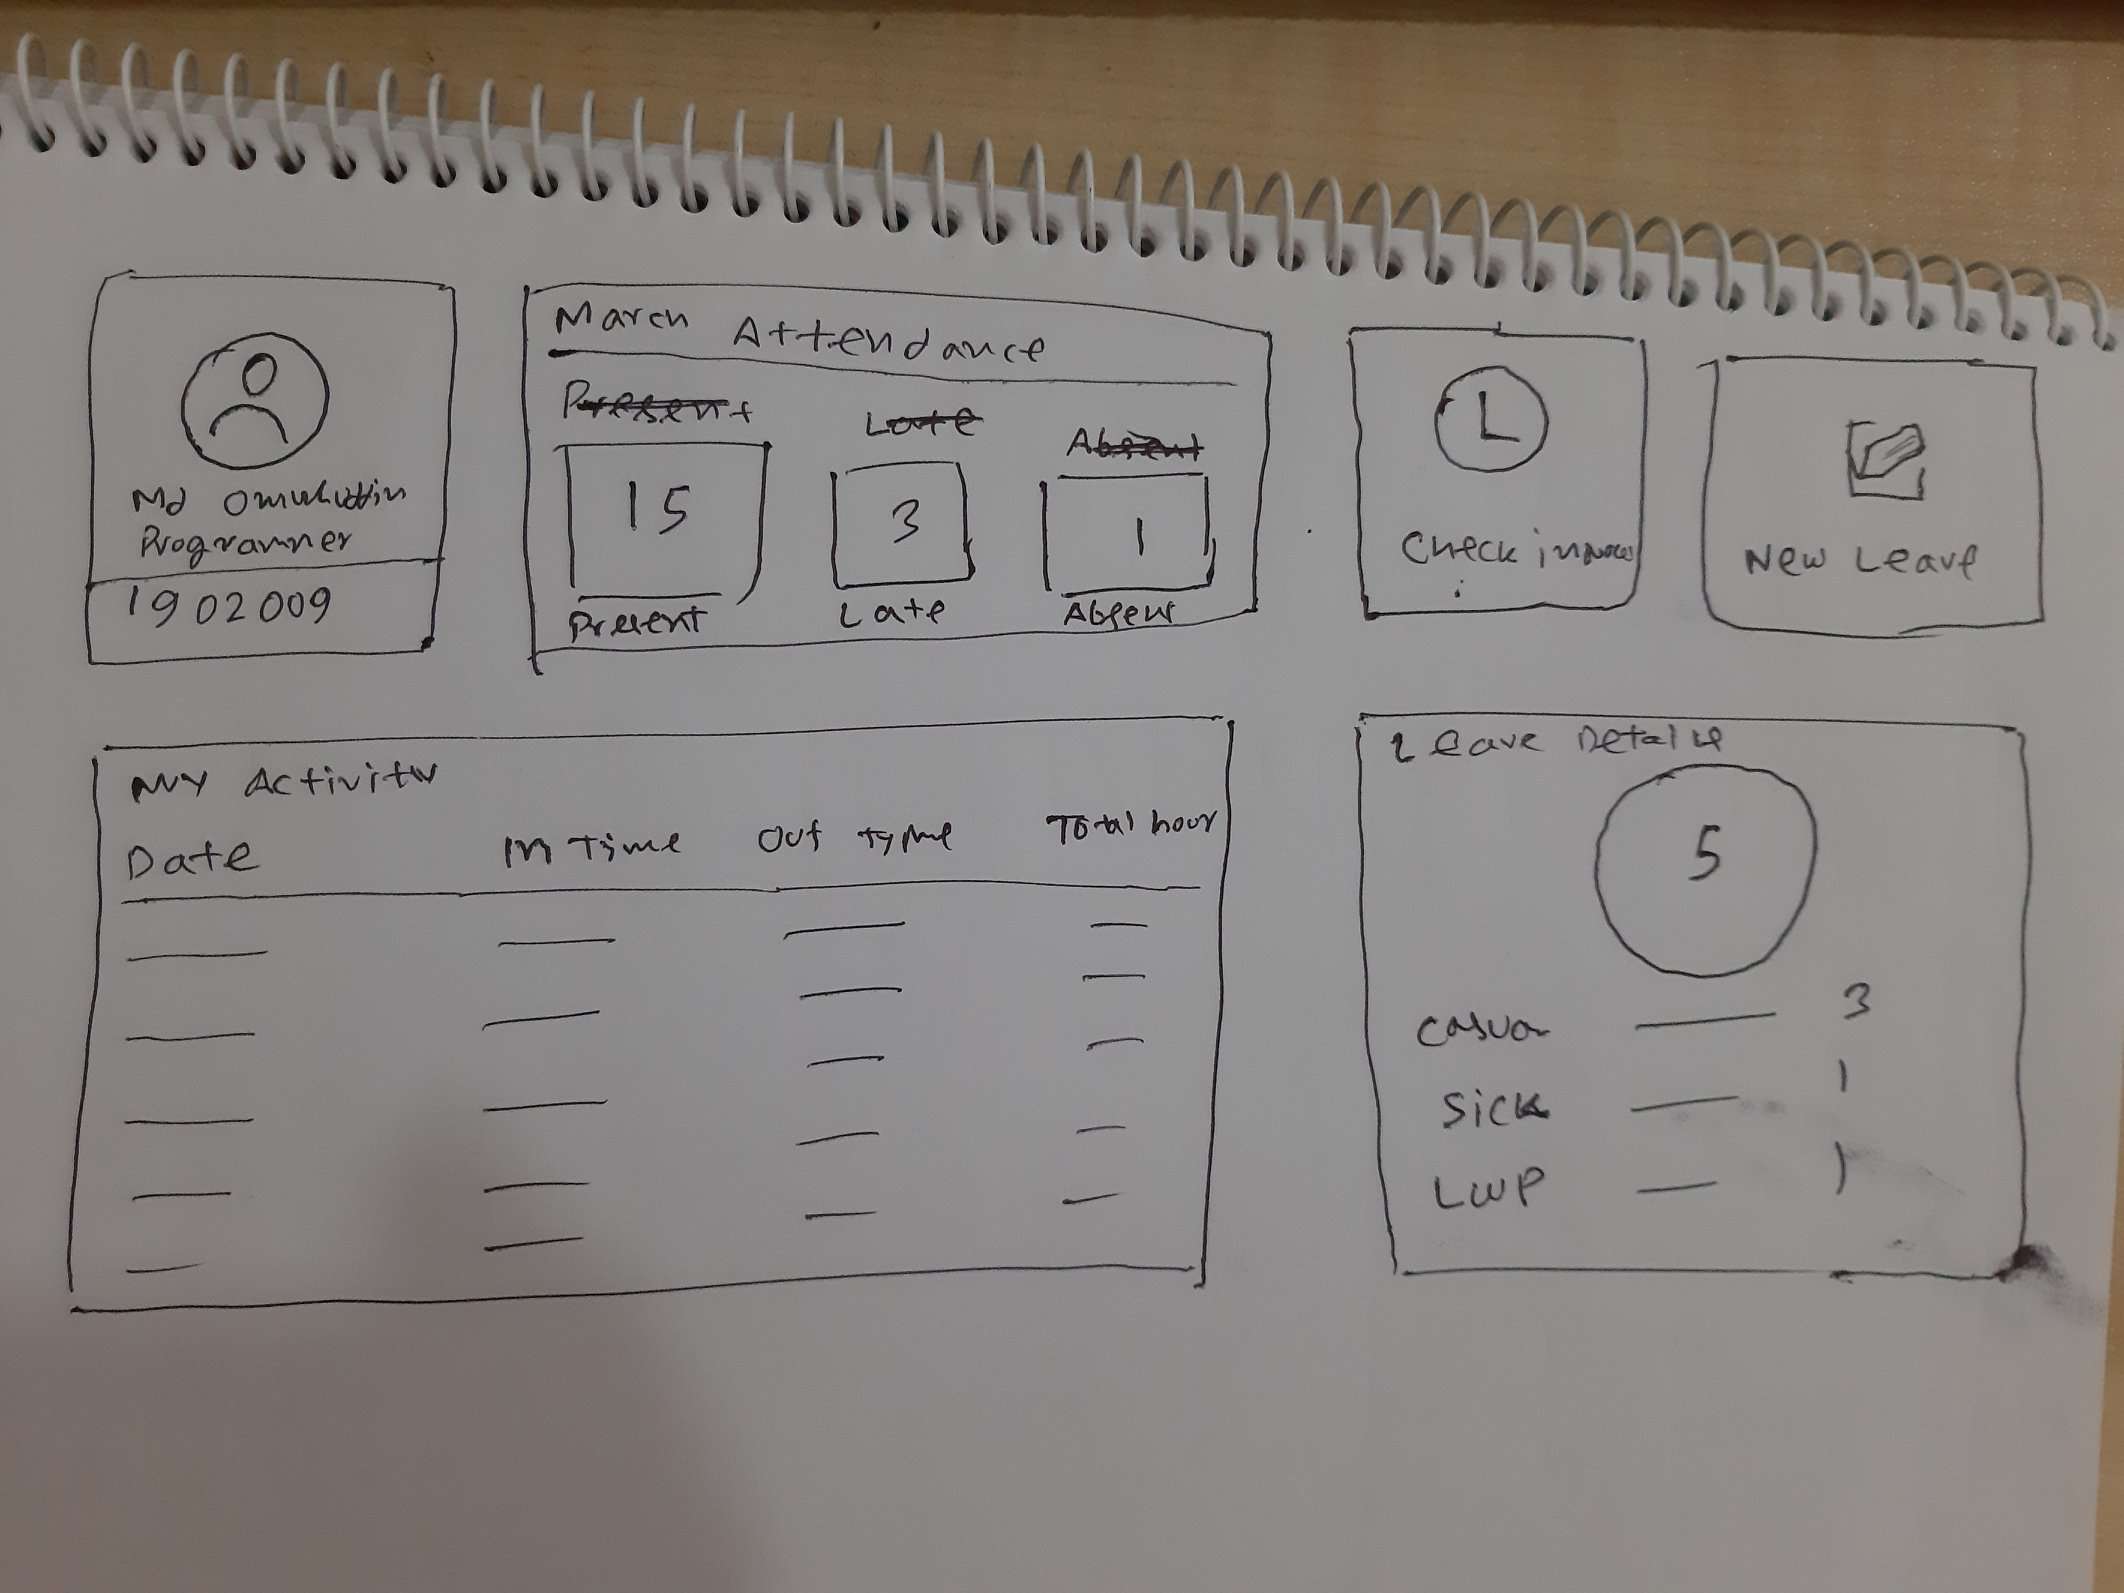 Md
Programmer
1902009
March Attendance
Present Late Absent
15 3 1
Present Late Absent
Check in
New Leave
My Activity
Date In Time Out Tyme Total hour
Leave Details
5
Casual 3
Sick 1
LWP 1